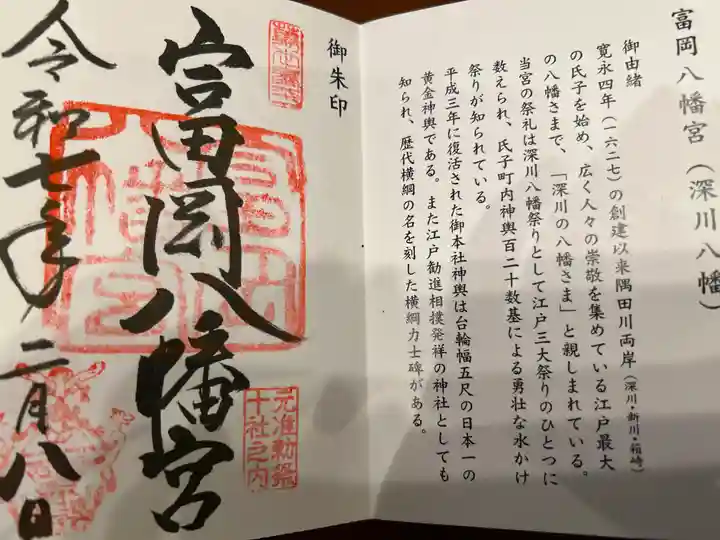 富岡八幡宮(深川八幡)
御由緒
寛永四年(一六二七)の創建以来隅田川両岸(深川・新川・箱崎)
の氏子を始め、広く人々の崇敬を集めている江戸最大
の八幡さまで、「深川の八幡さま」と親しまれている。
当宮の祭礼は深川八幡祭りとして江戸三大祭りのひとつに
数えられ、氏子町内神輿百二十数基による勇壮な水かけ
祭りが知られている。
平成三年に復活された御本社神輿は台輪幅五尺の日本一の
黄金神輿である。また江戸勧進相撲発祥の神社としても
知られ、歴代横綱の名を刻した横綱力士碑がある。
御朱印
富岡八幡宮
元准勅祭
十社之内
令和七年二月八日